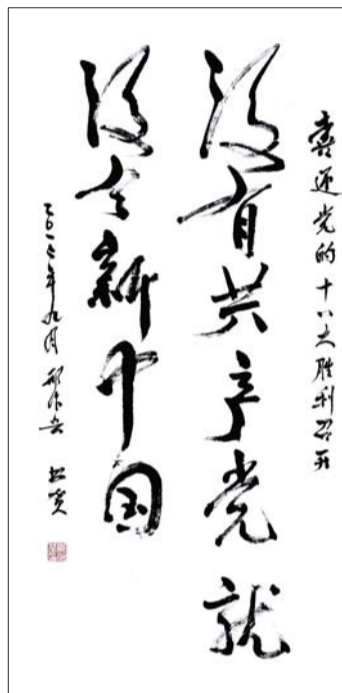 喜迎党的十八大胜利召开
没有共产党就
没有新中国
二〇一二年九月